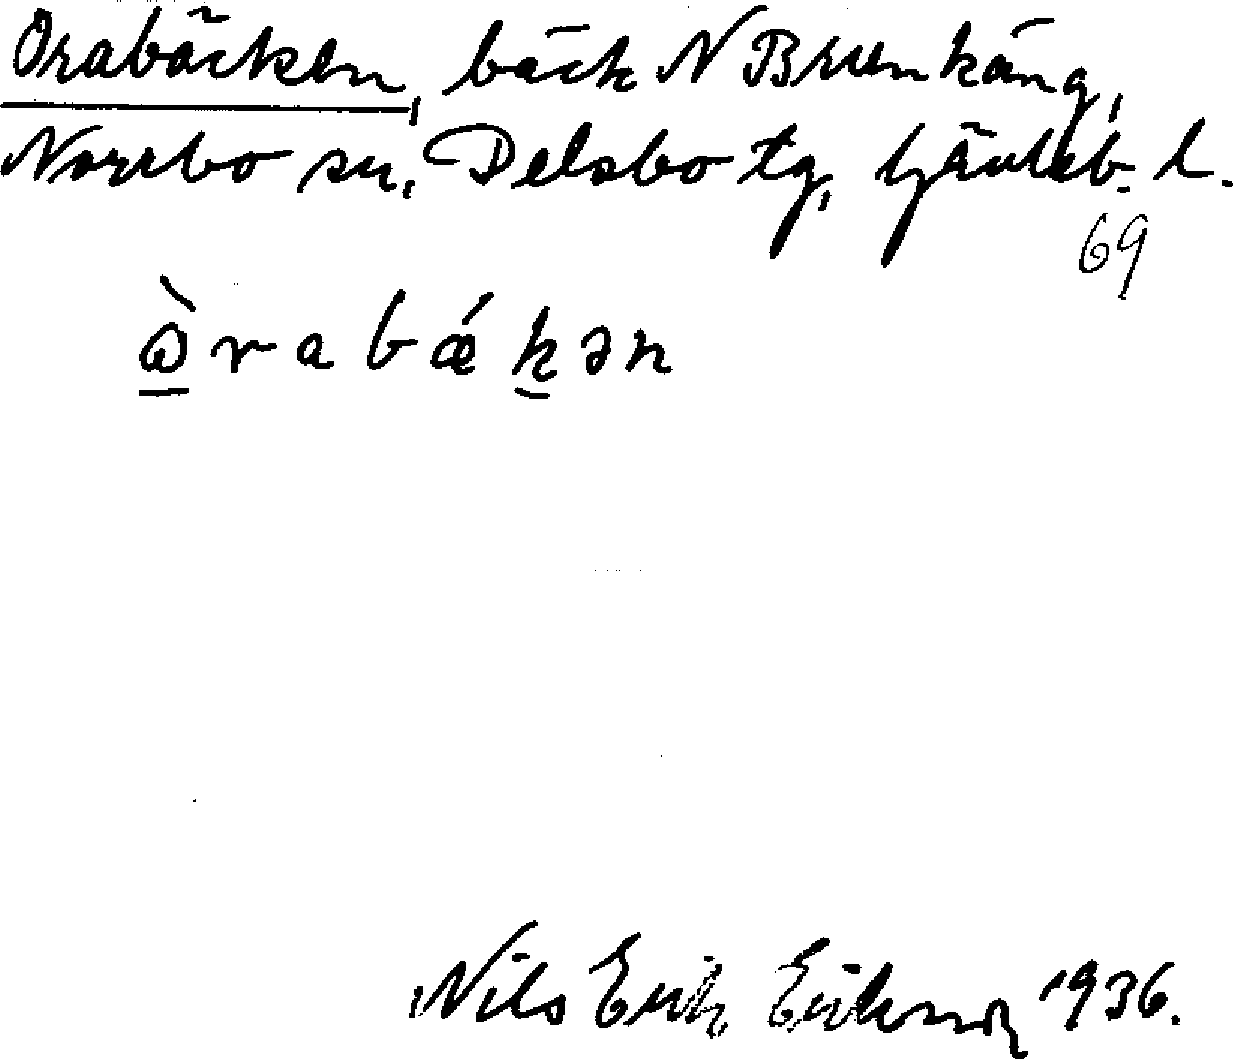 Orabäcken, bäck N Brunkäng,
Norrbo sn, Delsbo tg, Gävleb. l.
69
ὼrabǽkən
Nils Erik 1936.